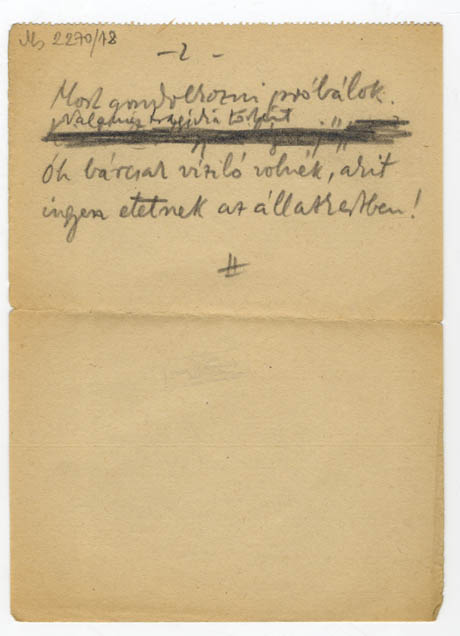 Ms 2270/18
- 2 -
Most gondolkozni próbálok.
Valami tragédia történt
Óh bárcsak víziló volnék, akit
ingyen etetnek az állatkertben!
#